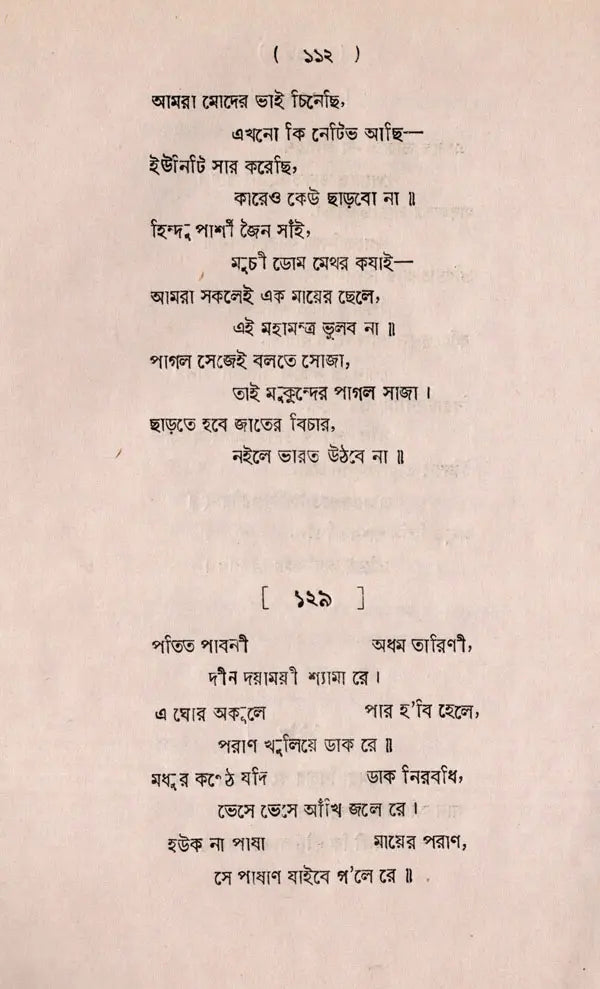 ( ১১২ )
আমরা মোদের ভাই চিনেছি,
এখনো কি নেটিভ আছি—
ইউনিটি সার করেছি,
কারেও কেউ ছাড়বো না ॥
হিন্দু পার্শী জৈন সাঁই,
মুচী ডোম মেথর কষাই—
আমরা সকলেই এক মায়ের ছেলে,
এই মহামন্ত্র ভুলব না ॥
পাগল সেজেই বলতে সোজা,
তাই মুকুন্দের পাগল সাজা ।
ছাড়তে হবে জাতের বিচার,
নইলে ভারত উঠবে না ॥
[ ১২৯ ]
পতিত পাবনী অধম তারিণী,
দীন দয়াময়ী শ্যামা রে ।
এ ঘোর অকূলে পার হ'বি হেলে,
পরাণ খুলিয়ে ডাক রে ॥
মধুর কণ্ঠে যদি ডাক নিরবধি,
ভেসে ভেসে আঁখি জলে রে ।
হউক না পাষা মায়ের পরাণ,
সে পাষাণ যাইবে গ'লে রে ॥